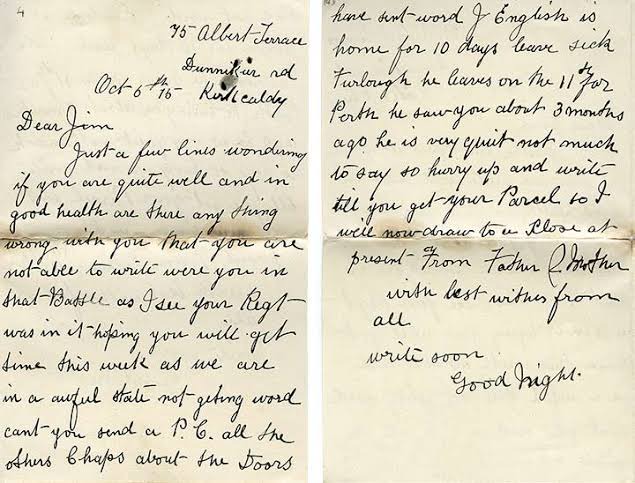 4
75 Albert Terrace
Dunnikier rd
Oct 6th 15 Kirkcaldy
Dear Jim
Just a few lines wondering
if you are quite well and in
good health are there any thing
wrong with you that you are
not able to write were you in
that Battle as I see your Regt
was in it hoping you will get
time this week as we are
in a awful state not geting word
cant you send a P.C. all the
others Chaps about the Doors
have sent word J English is
home for 10 days leave sick
Furlough he leaves on the 11th for
Perth he saw you about 3 months
ago he is very quit not much
to say so hurry up and write
till you get your Parcel so I
will now draw to a Close at
present From Father & Mother
with best wishes from
all
write soon
Good Night.